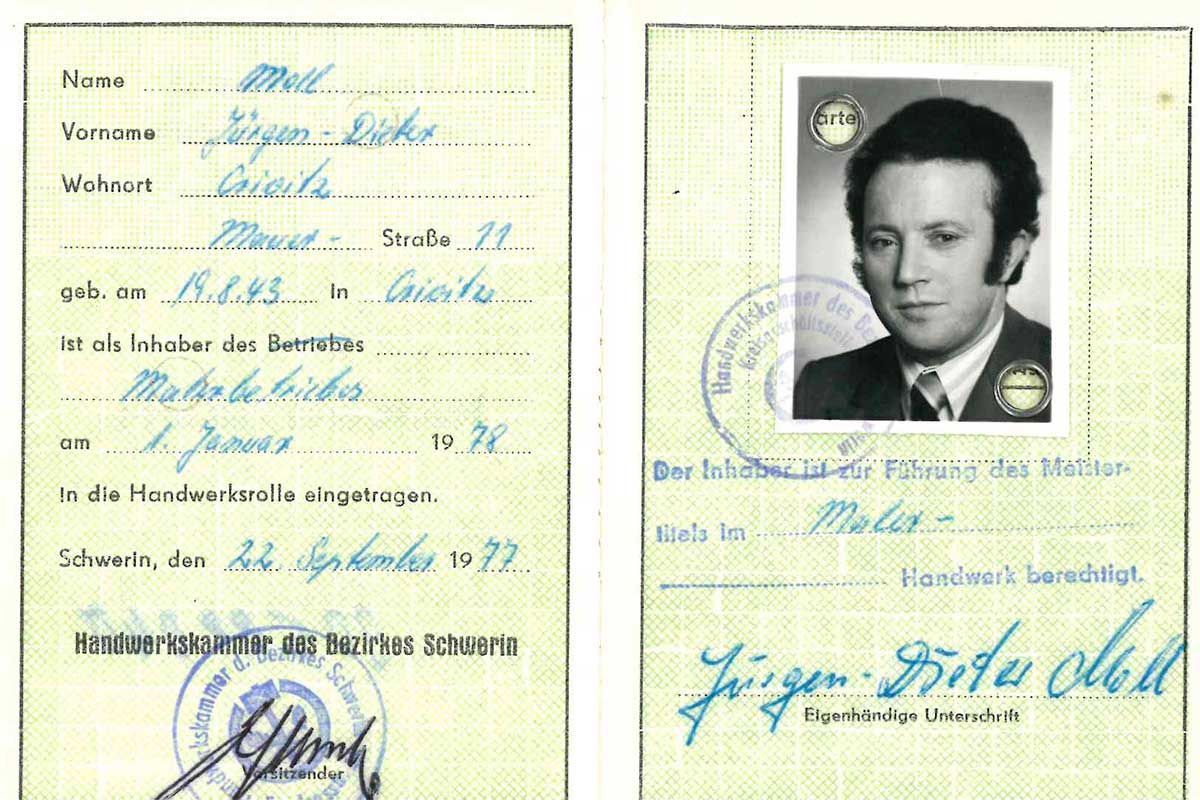 Name Moll
Vorname Jürgen - Dieter
Wohnort Crivitz
Mauer - Straße 11
geb. am 19.8.43 in Crivitz
ist als Inhaber des Betriebes
Malerbetriebes
am 1. Januar 1978
in die Handwerksrolle eingetragen.
Schwerin, den 22. September 1977
Handwerkskammer des Bezirkes Schwerin
kskammer d. Bezirkes Schwer
Vorsitzender
arte
Handwerkskammer des Be
Kreisgeschäftsstelle
Der Inhaber ist zur Führung des Meister-
titels im Maler -
Handwerk berechtigt.
Jürgen - Dieter Moll
Eigenhändige Unterschrift